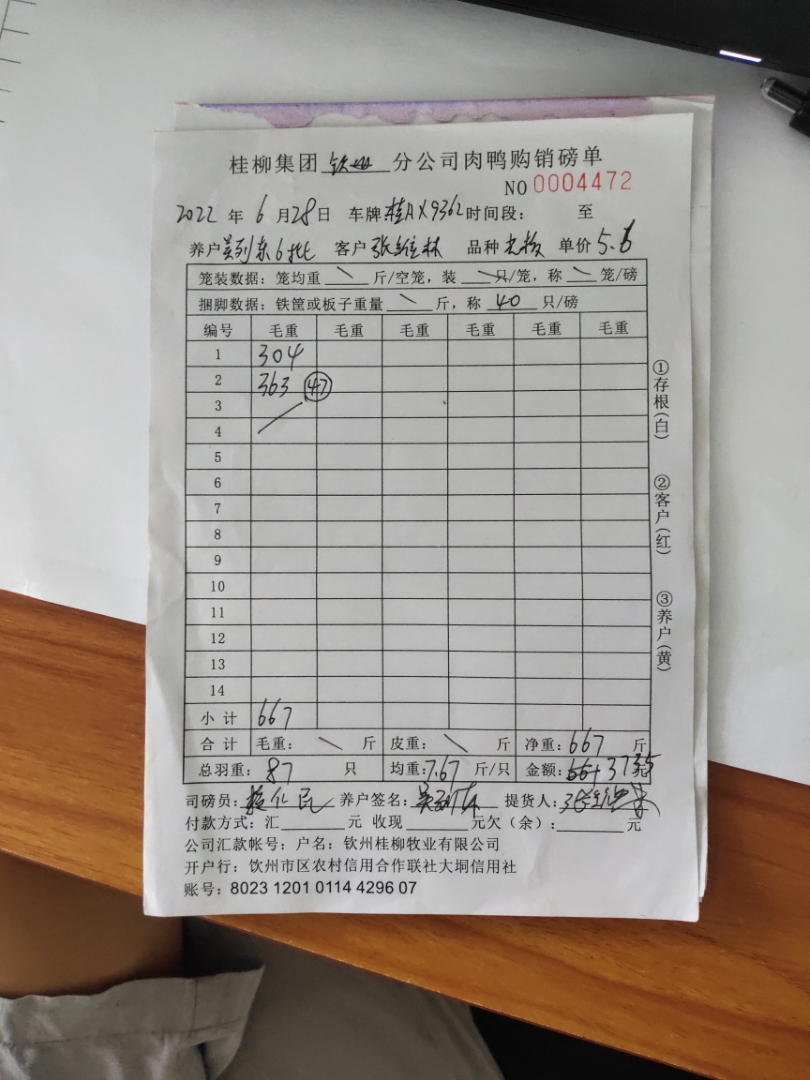 桂柳集团 钦州 分公司肉鸭购销磅单
NO 0004472
2022 年 6 月 28 日 车牌 桂A X9362 时间段： 至
养户 吴列东6批 客户 张维林 品种 单价 5.6
笼装数据：笼均重 \ 斤/空笼，装 \ 只/笼，称 \ 笼/磅
捆脚数据：铁筐或板子重量 \ 斤，称 40 只/磅
编号 毛重 毛重 毛重 毛重 毛重 毛重
1 304
2 363 47
3
4
5
6
7
8
9
10
11
12
13
14
小 计 667
合 计 毛重： \ 斤 皮重： \ 斤 净重：667 斤
总羽重： 87 只 均重：7.67 斤/只 金额： 3735 元
司磅员： 养户签名：吴列东 提货人：张维林
付款方式：汇 元 收现 元欠（余）： 元
公司汇款帐号：户名：钦州桂柳牧业有限公司
开户行：钦州市区农村信用合作联社大垌信用社
账号：8023 1201 0114 4296 07
①存根(白)
②客户(红)
③养户(黄)